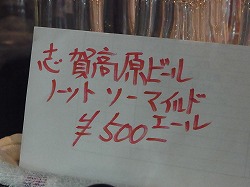 志賀高原ビール
ノット ソー マイルド
エール
¥500ー